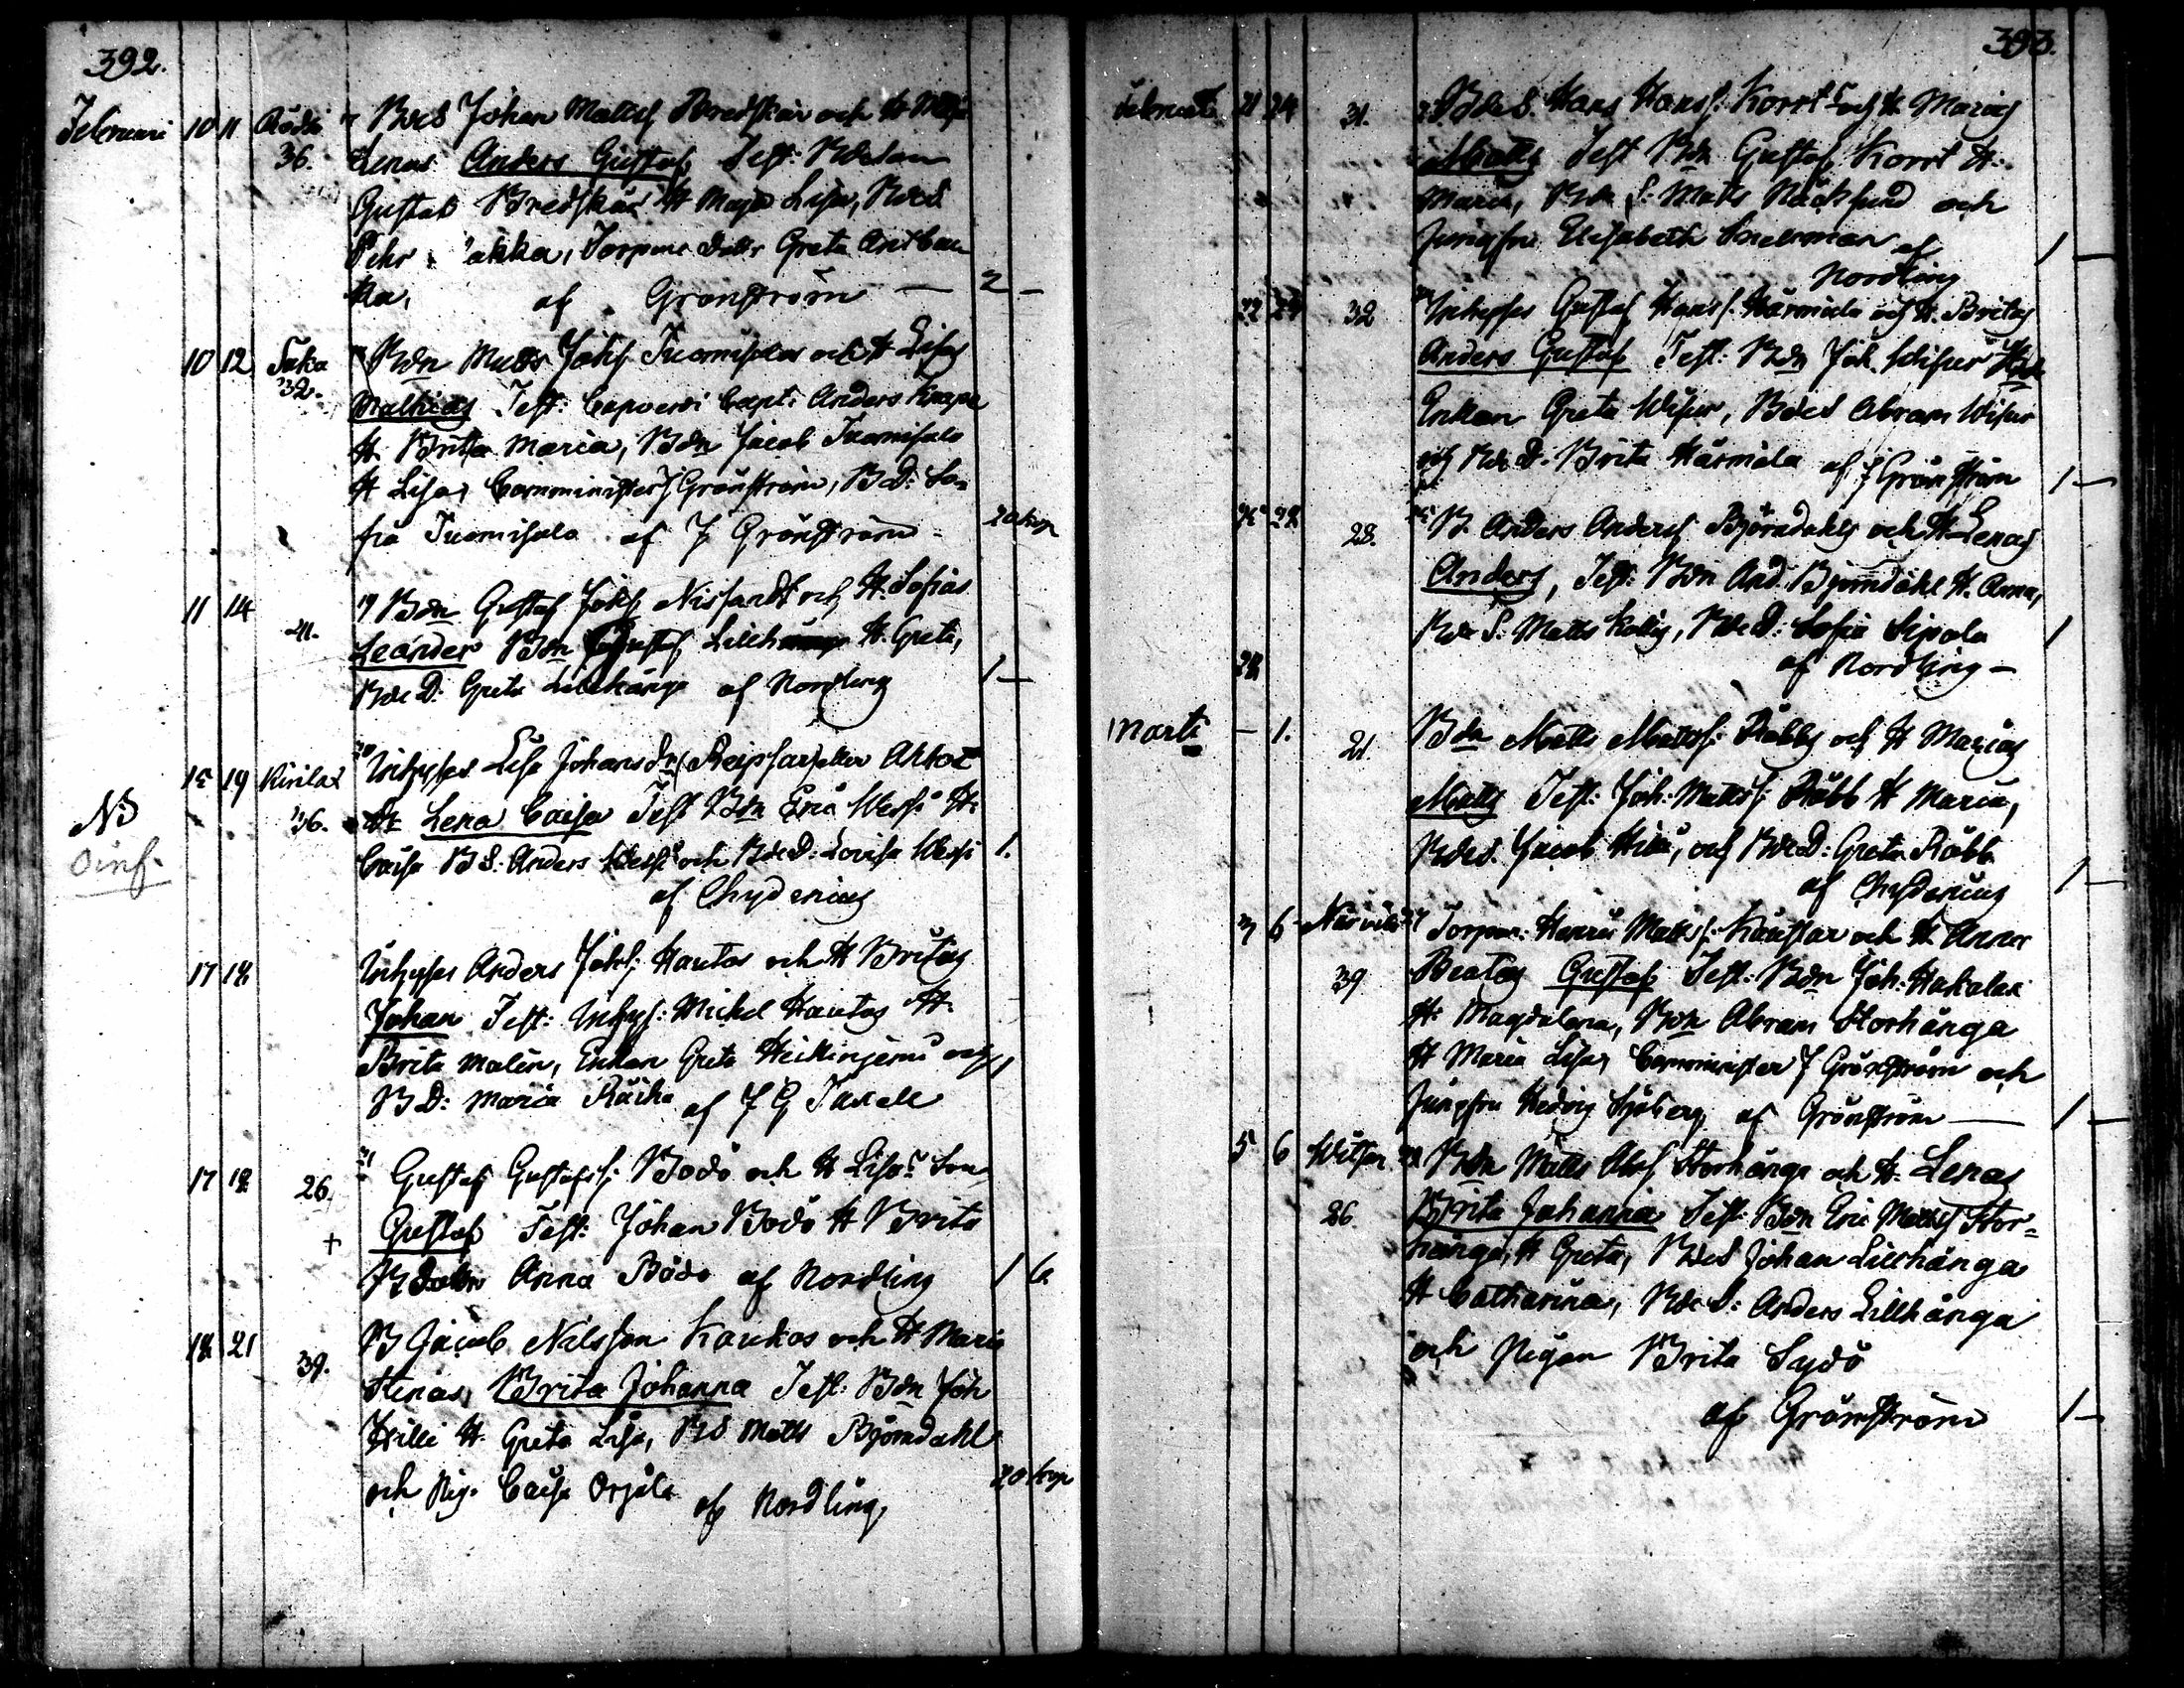 392.
Februari 10 11 Rödsö Bdes Johan Mattss Bredskär och H Maja
36. Lenas Anders Gustaf Test: Bdelan
Gustaf Bredskär H Maja Lisa, Bdes
Pehr akka, Torpare dottr Greta
ka, af Gronström — 2 —
10 12 Såka Bdn Matts Johss Tuomisalas och H Lisas
32. Mathias Test: Capverdi Capt: Anders Knape
H Britta Maria, Bdn Jacob Tuomisalo
H Lisa, Comminister J Grönström, B D: So-
fia Tuomisalo af J Grönström 20 kop
11 14 19 Bdn Gustaf Johss Nissandt och H. Sofias
21. Leander Bdn Gustaf H. Greta,
Bde D: Greta Lillhånga af Nordling 1 —
15 19 Kirilax Inhyses Lisa Johansdr
36. dr Lena Caisa Test Bdn Eric Wessi H:
NB
Oinf.
Caisa B S: Anders Wessi och Bde D: Lovisa Wessi 1.
af Chydenius
17 18 Inhyses Anders Johss Hautas och H Britas
Johan Test: Inhys: Mickel Hautas H:
Brita Malin, Enkan Greta och 1
B D: Maria af J G Taxell
17 18 26. Gustaf Gustafss: Bodö och H Lisas Son
+ Gustaf Test: Johan Bodö H Brita
B dottr Anna Bodö af Nordling 1 6
18 21 B Jacob Nilsson Kaukos och H Maria
39. Stenas, Brita Johanna Test: Bdn Joh
Hilli H. Greta Lisa, B S Matts Björndahl
och Pig. Caisa Orjala af Nordling, 20 kop
393.
Februarii 21 24 31. Bdes. Hans Hanss: Korrt och H Marias
Matts Test Bdn Gustaf Korrt H.
Maria, Bde S: Matts Näcksund och
Jungfru Elisabeth Snelman af 1 —
Nordling
22 24 32 Inhyses Gustaf Hanss. Härmäla och H. Britas
Anders Gustaf Test: Bdn Joh. Wisur
Enkan Greta Wisur, Bdes Abram Wisur
och Bde D. Brita Härmäla af J Grönström 1 —
28. B. Anders Anderss Björndahls och H Lenas
Anders, Test: Bdn And. Björndahl H. Anna,
Bde S: Matts Kallis, Bde D: Sofia Sipola 1
28 af Nordling —
Marti — 1. 21. Bdn Matts Mattss: Råbbs och H Marias
Matts Test: Joh: Mattss: Råbb H Maria,
Bdes. Jacob, och Bde D: Greta Råbb
af Chydenius 1 —
3 6 Närvilä Torpare: Henric Mattss: Kaustar och H. Anna
39 Beatas Gustaf Test: Bdn Joh: Hakalax
H: Magdalena, Bdn Abram Storhånga
H Maria Lisa, Comminister J Grönström och
Jungfru Hedvig Sjöberg af Grönström — 1 —
5 6 Witsar Bdn Matts Abrss Storhånga och H. Lenas
26 Brita Johanna Test: Bdn Eric Mattss Stor-
hånga, H Greta, Bdes Johan Lillhånga
H Catharina, Bde S: Anders Lillhånga
och Pigan Brita Sydö
af Grönström 1 —